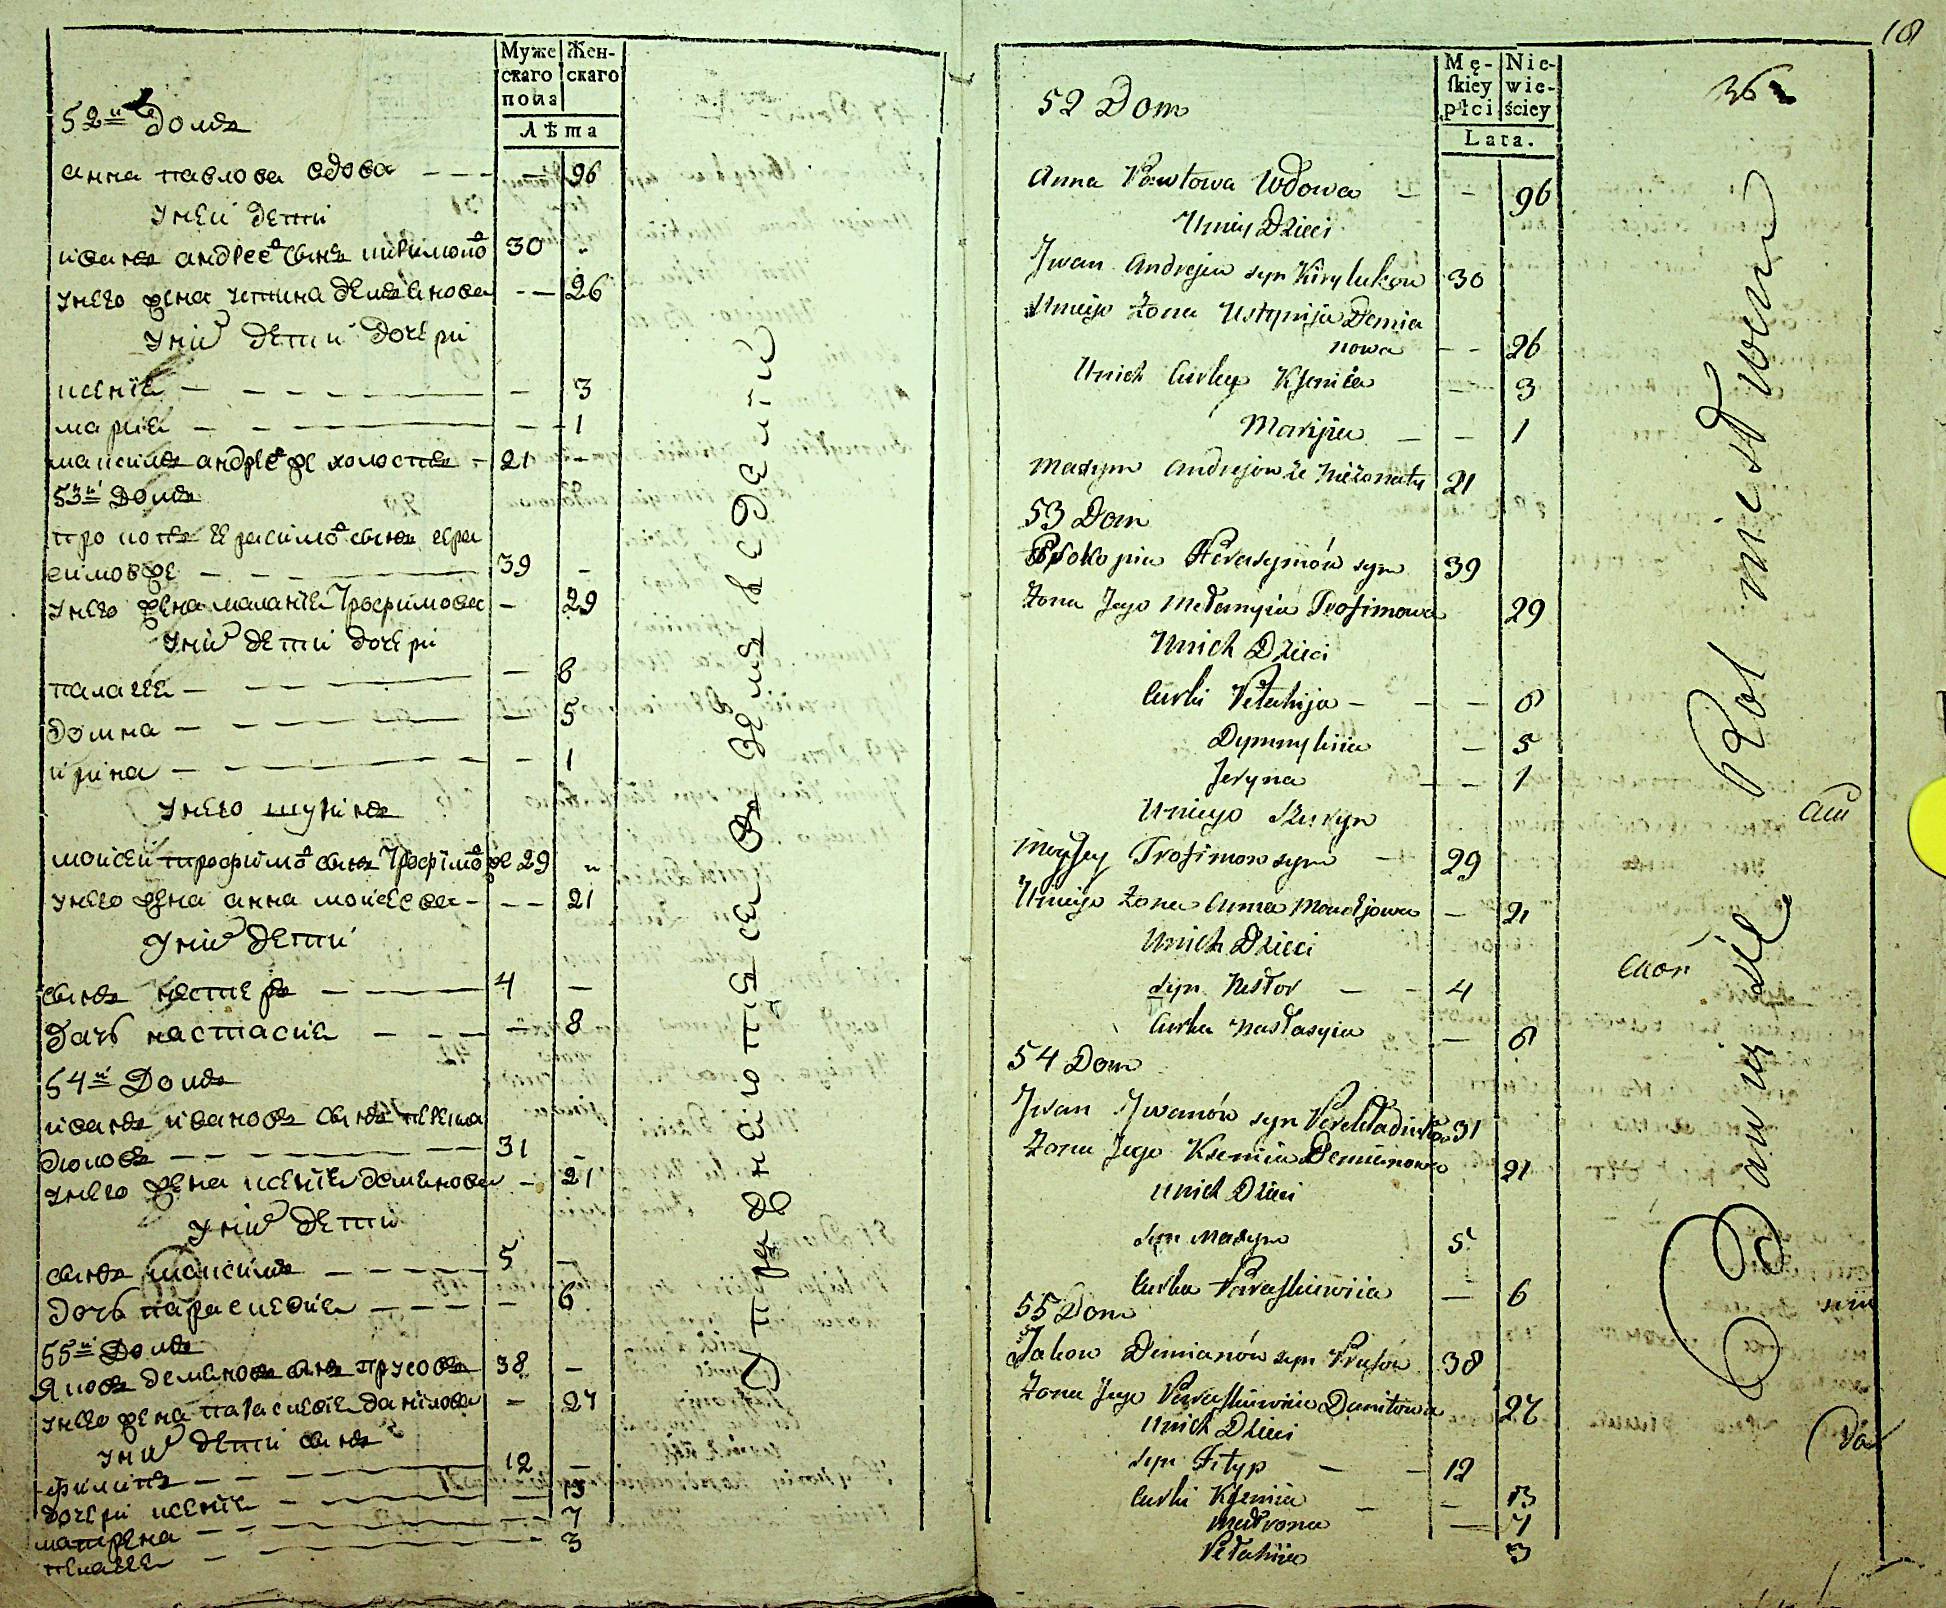 Муже
скаго
пола
Жен-
скаго
Лѣта
52й Домъ
анна павлова вдова — — — — 96
унеи дети
иванъ андреевъ сынъ 30
унего жена устина демянова — — 26
уних дети дочери
ксения — — — — — 3
мария — — — — — 1
максимъ андреевъ же холостъ — 21 —
53й Домъ
прокопъ герасимовъ сынъ гера
симовже — — — 39 —
унего жена малания трофимова — 29
уних дети дочери
палагея — — — — — 8
домна — — — — — 5
ирина — — — — — 1
унего шуринъ
моисеи трофимовъ сынъ трофимовже 29 „
унего жена анна моисеева — — — 21
уних дети
сынъ нестеръ — — — 4 —
дочь настасия — — — — 8
54й Домъ
иванъ ивановъ сынъ
— — — 31 —
унего жена ксения демянова — 21
уних дети
сынъ максимъ — — — 5 —
дочь параскевия — — — — 6
55й Домъ
яковъ демяновъ сынъ прусовъ 38 —
унего жена параскевия данилова — 27
уних дети сынъ
филипъ — — — 12 —
дочери ксения — — — 13
матрена — — — — 7
пелагея — — — — 3
18
362
Mę-
ſkiey
płci
Nie-
wie-
ściey
Lata.
52 Dom
Anna Pawłowa Wdowa — — 96
Uniey Dzieci
Jwan Andrejew syn Kirylukow 30
Uniego Zona Ustynija Demia
nowa — — 26
Unich Curky Ksenia — 3
Maryia — — 1
Maxym Andrejow że nieżonaty 21
53 Dom
Prokopiu Herasymów syn 39
Zona Jego Mełanyia Trofimowa 29
Unich Dzieci
Curki Pełahija — — — 8
Dymnykiia — 5
Jeryna — — 1
Uniego Szuryn
Moyſey Trofimow syn — 29
Uniego Zona Anna — 21
Unich Dzieci
syn Nestor — — 4
Curka Nastasyia — 8
54 Dom
Jwan Jwanów syn 31
Zona Jego Ksenia Demianowa 21
Unich Dzieci
syn Maxym 5
Curka Paraſkiewiia — 6
55 Dom
Jakow Dimianów syn Prusów 38
Zona Jego Paraſkiewiia Daniłowa 27
Unich Dzieci
syn Filyp — — 12
Curki Ksenia — — 13
Matrona — 7
Pełahiia 3